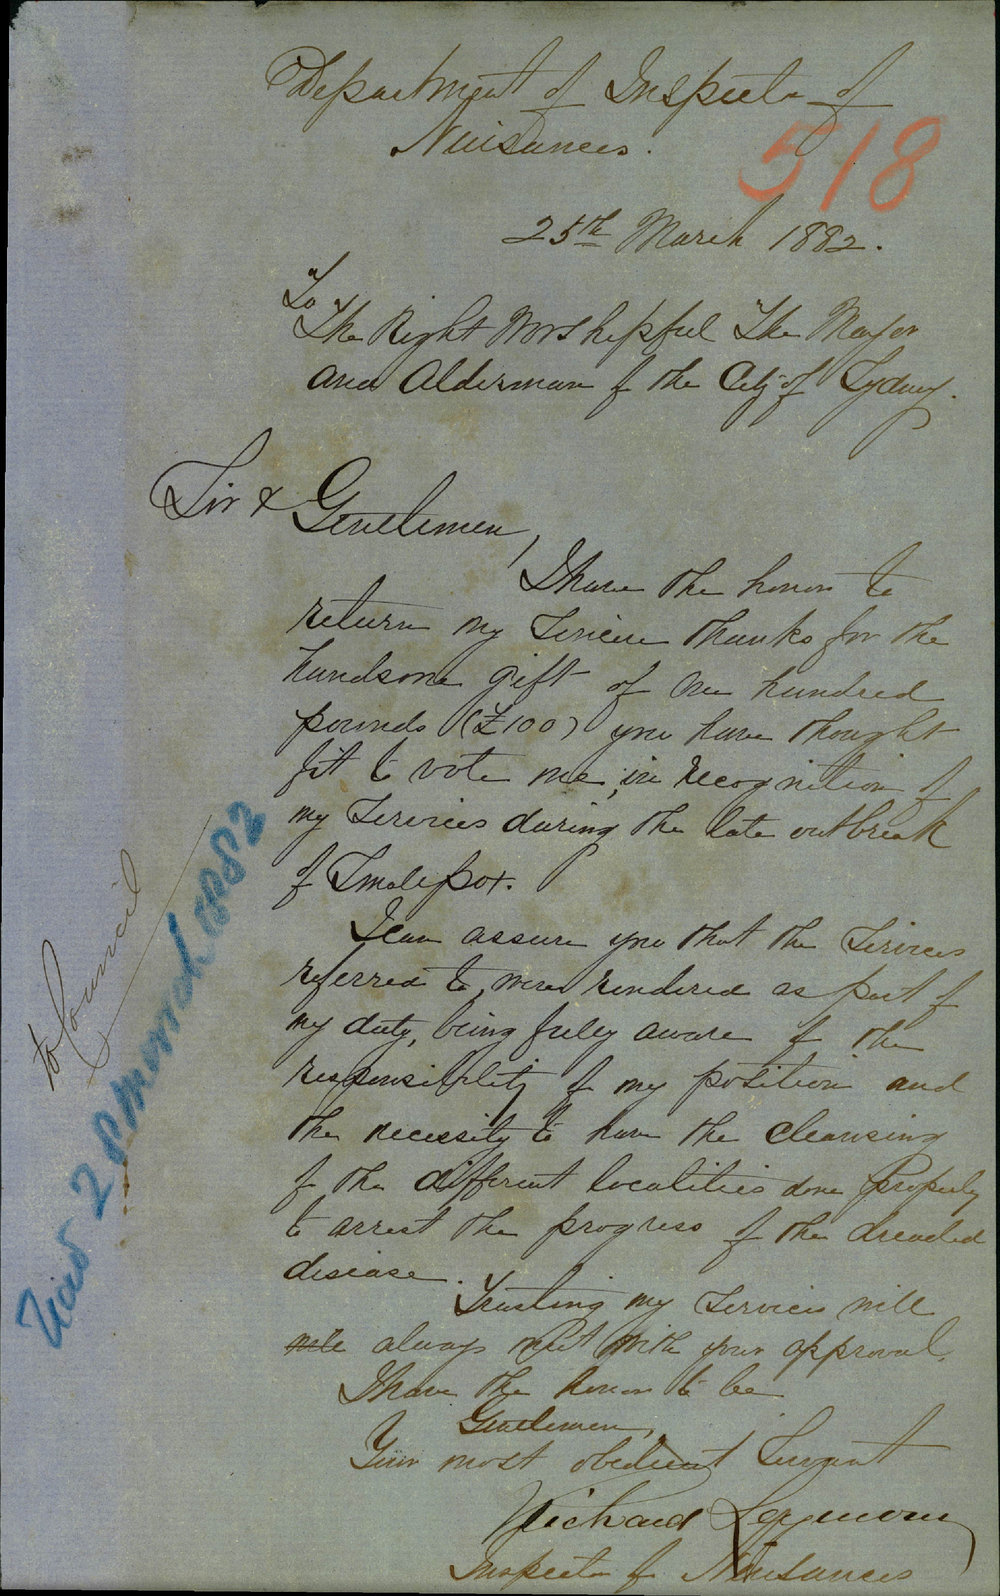 Department of Inspector of
Nuisances.
518
25th March 1882.
To
The Right Worshipful The Mayor
and Alderman of the City of Sydney.
Sir & Gentlemen,
I have the honor to
return my Sincere thanks for the
handsome gift of One hundred
pounds (£100) you have thought
fit to vote me, in recognition of
my Services during the late outbreak
of Smallpox.
I can assure you that the Services
referred to, were rendered as part of
my duty, being fully aware of the
responsibility of my position and
the necessity to have the cleansing
of the different localities done properly
to arrest the progress of the dreaded
disease.
Trusting my Services will
will always meet with your approval.
I have the honor to be
Gentlemen,
Your most obedient Servant
Richard Seymour
Inspector of Nuisances
to Council
28 March 1882